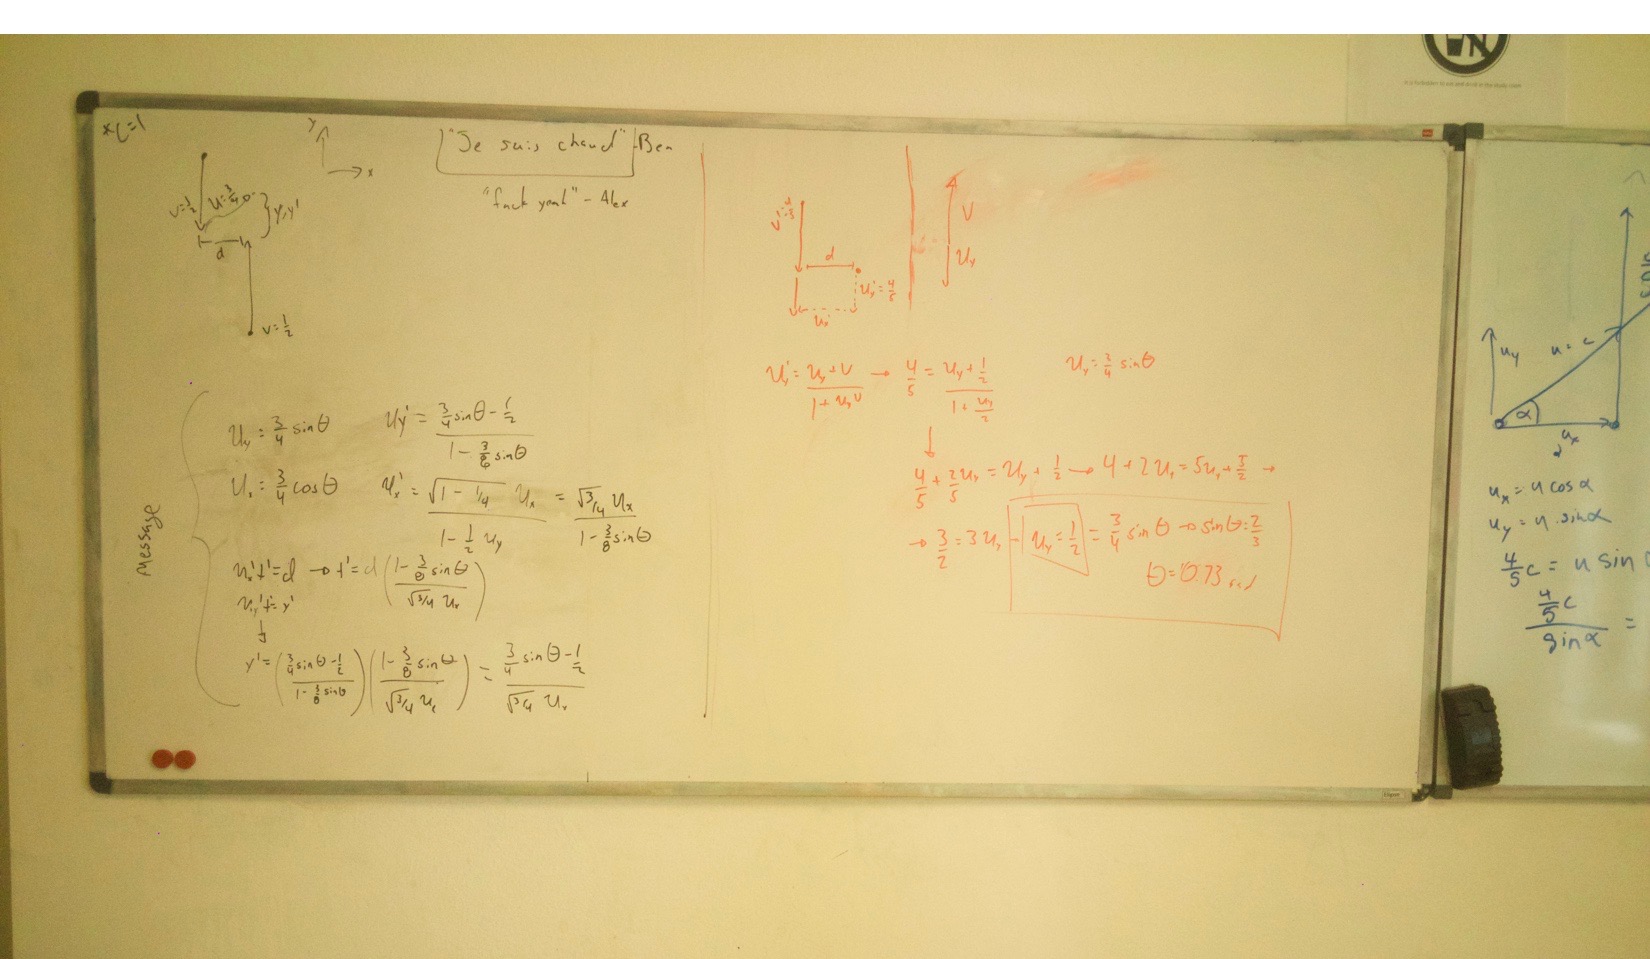 *C=1
y
x
"Je suis chaud" -Ben
"fuck yeah" - Alex
v=1/2
u=3/4
θ
y,y'
d
v=1/2
Message
u_y = 3/4 sinθ
u_y' = (3/4 sinθ - 1/2)/(1 - 3/8 sinθ)
u_x = 3/4 cosθ
u_x' = √(1 - 1/4) u_x/(1 - 1/2 u_y) = √3/4 u_x/(1 - 3/8 sinθ)
u_x't' = d → t' = d((1 - 3/8 sinθ)/(√3/4 u_x))
u_y't' = y'
↓
y' = ((3/4 sinθ - 1/2)/(1 - 3/8 sinθ))((1 - 3/8 sinθ)/(√3/4 u_x)) = (3/4 sinθ - 1/2)/(√3/4 u_x)
d
u_y' = 4/5
u_x'
V
u_y
u_y' = (u_y + V)/(1 + u_y V) → 4/5 = (u_y + 1/2)/(1 + u_y/2)
u_y = 3/4 sinθ
↓
4/5 + 2/5 u_y = u_y + 1/2 → 4 + 2u_y = 5u_y + 5/2 →
→ 3/2 = 3u_y → u_y = 1/2 = 3/4 sinθ → sinθ = 2/3
θ = 0.73 rad
u_y
u = c
α
u_x
u_x = u cosα
u_y = u sinα
4/5 c = u sin
4/5 c / sinα =